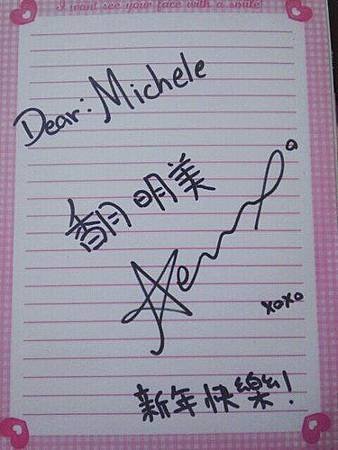 I want see your face with a smile!
Dear: Michele
香月明美
xoxo
新年快樂!